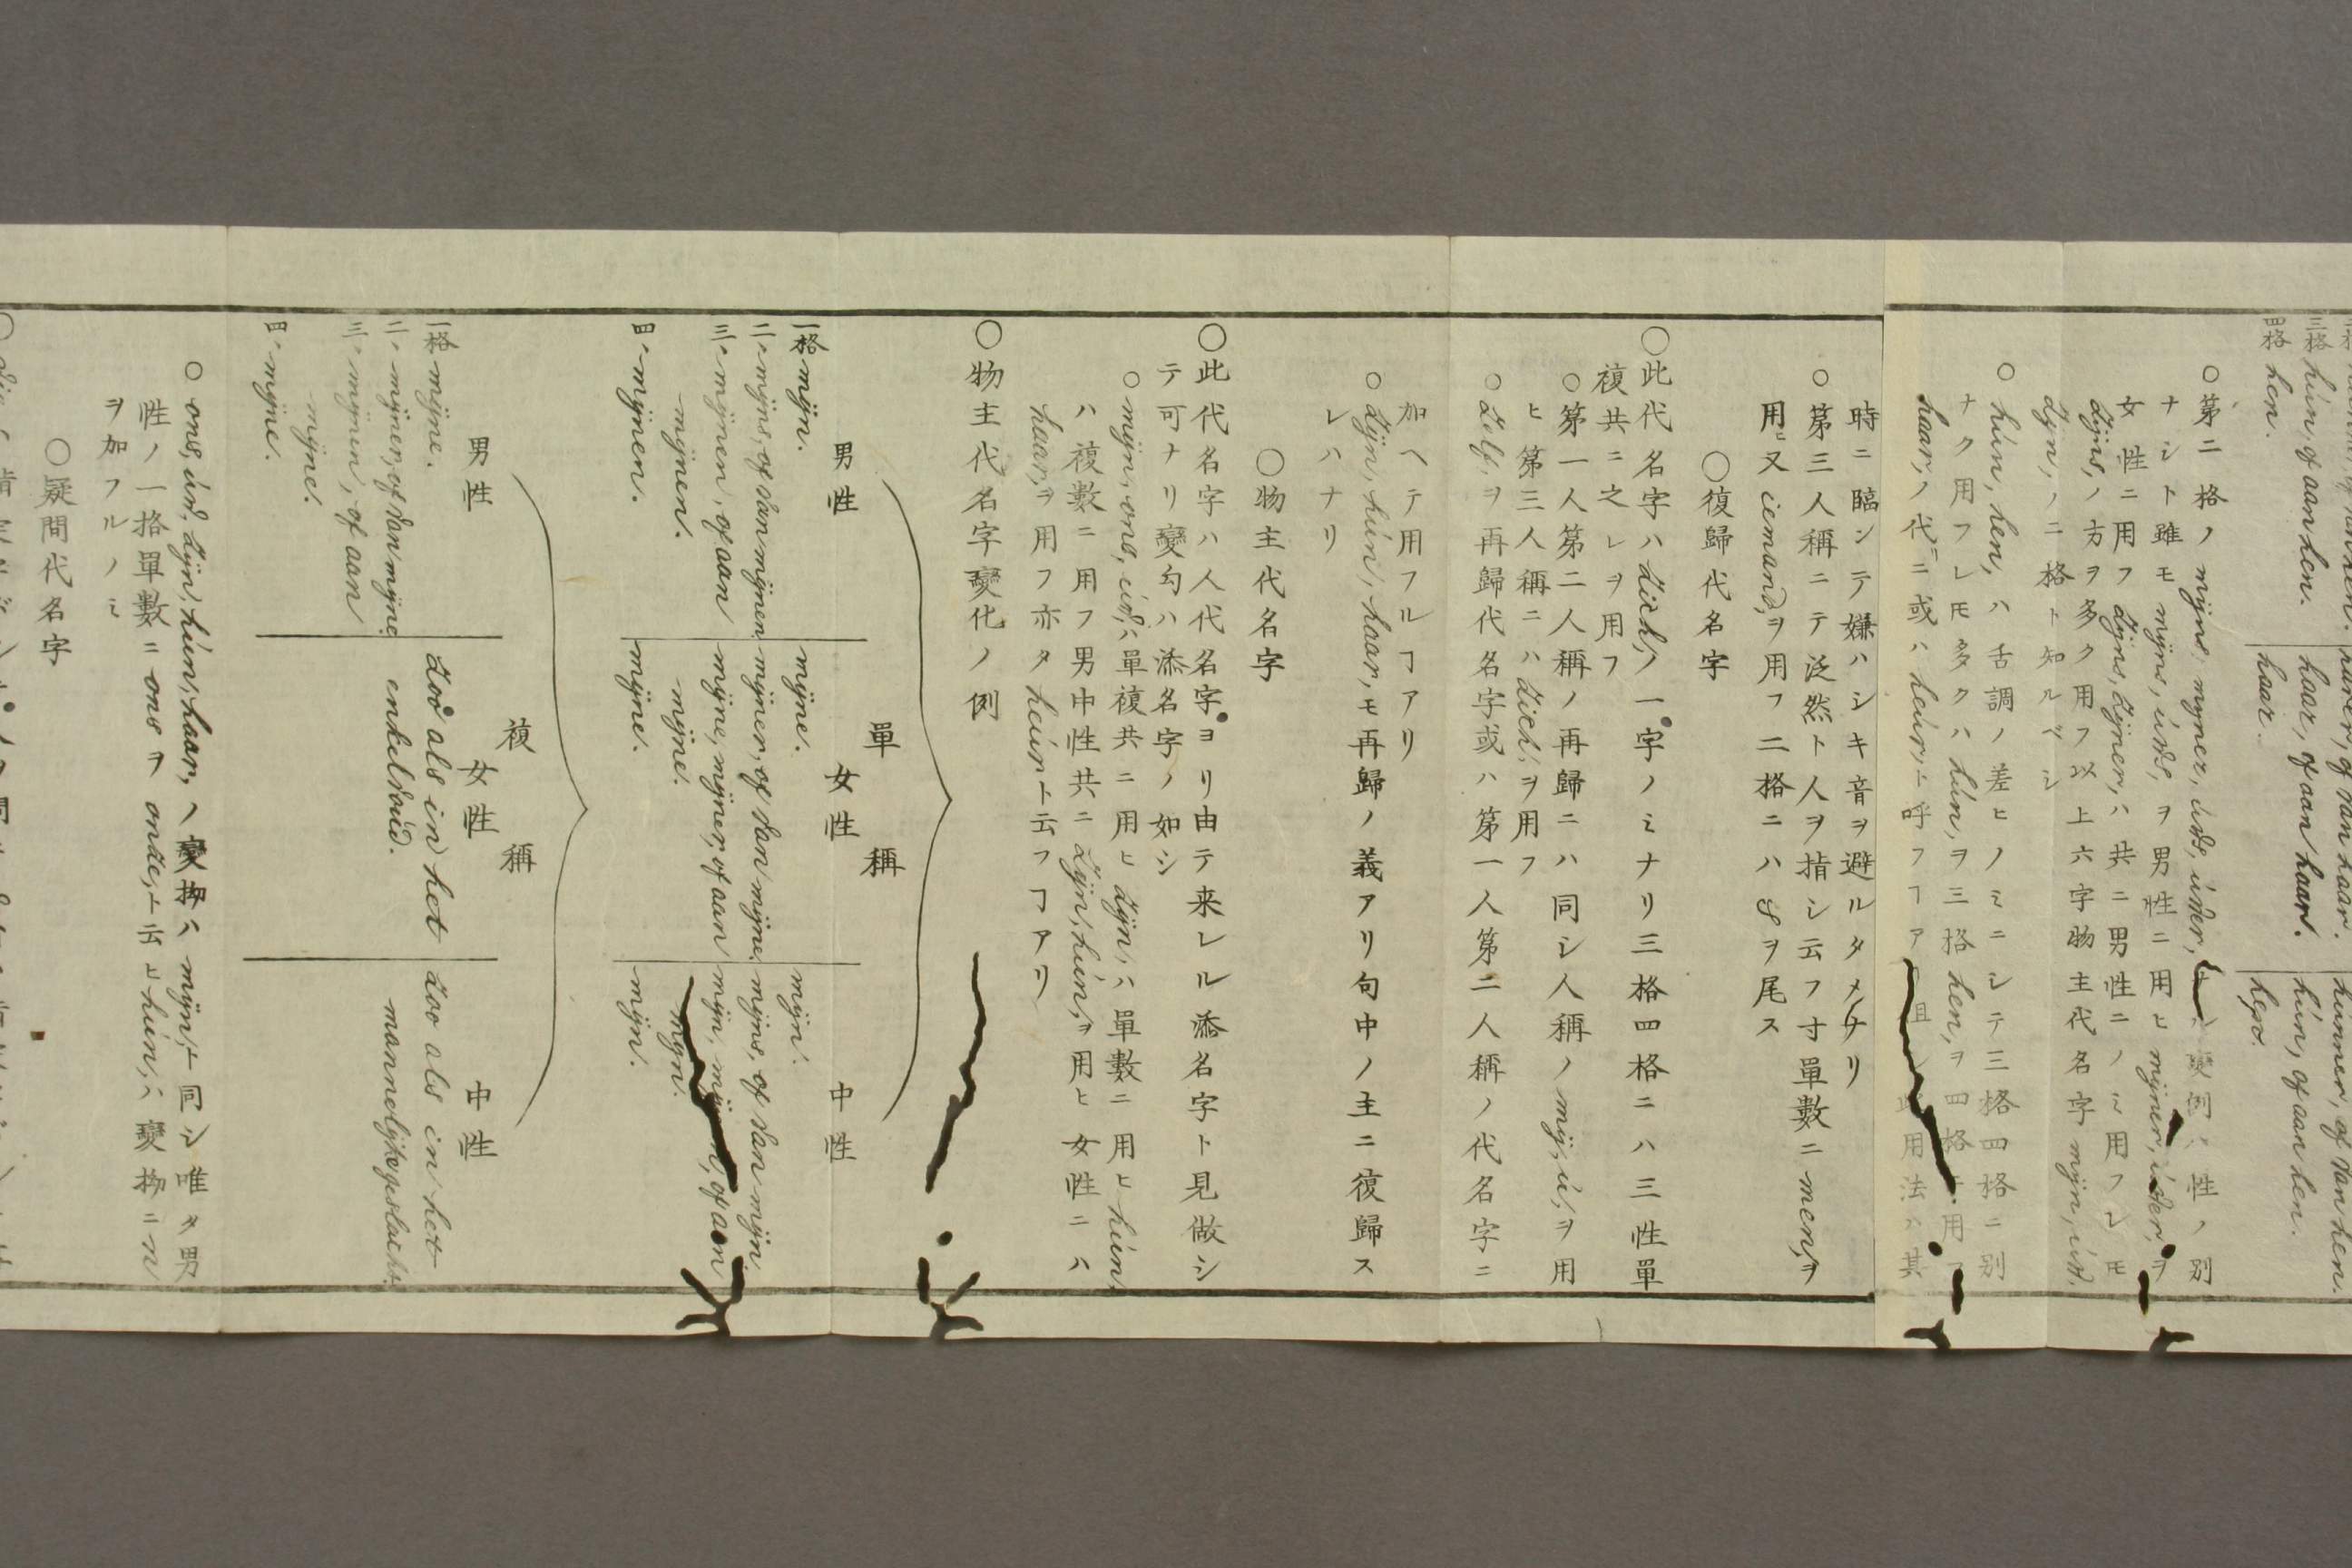 四格 hen.
三格 hún, of aan hen.
haar, of aan haar.
haar.
hún, of aan hen.
○第二格ノ mijns, mijner, úws, úwer,
変例ハ性ノ別
ナシト雖モ mijns, úws, ヲ男性ニ用ヒ mijner, úwer, ヲ
女性ニ用フ zijns, zijner, ハ共ニ男性ニノミ用フレ𪜈
zijns, ノ方ヲ多ク用フ以上六字物主代名字 mijn, úw.
zijn, ノ二格ト知ルベシ
○hún, hen, ハ舌調ノ差ヒノミニシテ三格四格ニ別
ナク用フレ𪜈多クハ hún, ヲ三格 hen, ヲ四格ニ用フ
haar, ノ代ニ或ハ heúr, ト呼フヿア
用法ハ其
時ニ臨ンテ嫌ハシキ音ヲ避ルタメナリ
○第三人稱ニテ泛然ト人ヲ指シ云フ寸單數ニ men, ヲ
用ヒ又 iemand, ヲ用フ二格ニハ s ヲ尾ス
○復歸代名字
○此代名字ハ zich, ノ一字ノミナリ三格四格ニハ三性單
複共ニ之レヲ用フ
○第一人第二人稱ノ再歸ニハ同シ人稱ノ mij, ú, ヲ用
ヒ第三人稱ニハ zich, ヲ用フ
○zelf, ヲ再歸代名字或ハ第一人第二人稱ノ代名字ニ
加ヘテ用フルヿアリ
○zijn, hún, haar, モ再歸ノ義アリ句中ノ主ニ復歸ス
レハナリ
○物主代名字
○此代名字ハ人代名字ヨリ由テ来レル添名字ト見做シ
テ可ナリ變勾ハ添名字ノ如シ
○mijn, ons, úw, ハ單複共ニ用ヒ zijn, ハ單數ニ用ヒ hún,
ハ複數ニ用フ男中性共ニ zijn, hún, ヲ用ヒ女性ニハ
haar, ヲ用フ亦タ heúr ト云フヿアリ
○物主代名字變化ノ例
單稱
男性 女性 中性
一格 mijn. mijne. mijn.
二〃 mijns, of van mijnen. mijner, of van mijne. mijns, of van mijn.
三〃 mijnen, of aan mijnen. mijne, mijner, of aan mijne. mijn, of aan mijn.
四〃 mijnen. mijne. mijn.
複稱
男性 女性 中性
一格 mijne. zoo als in het zoo als in het
二〃 mijner, of van mijne enkelvoúd. mannelijkegeslacht.
三〃 mijnen, of aan
mijne.
四〃 mijne.
○ons, úw, zijn, hún, haar, ノ變拗ハ mijn, ト同シ唯タ男
性ノ一格單數ニ ons ヲ onze, ト云ヒ hún, ハ變拗ニ n
ヲ加フルノミ
○疑問代名字